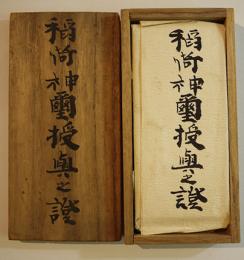 稲荷神璽授與之證
稲荷神璽授與之證